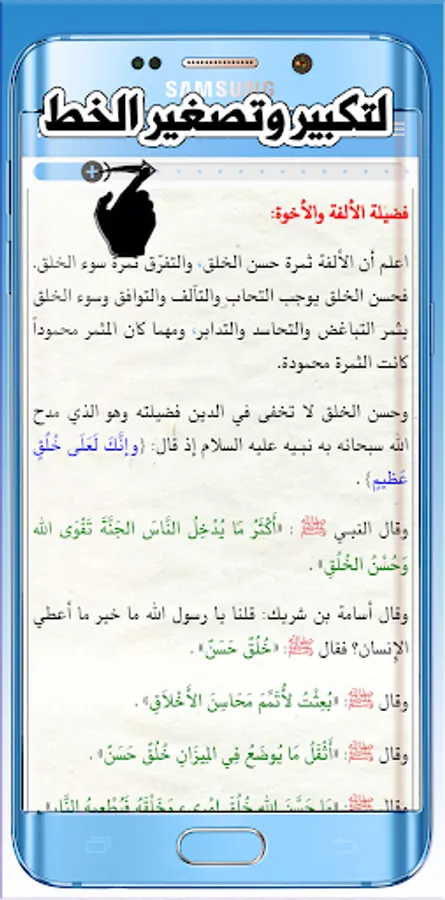 SAMSUNG
لتكبير وتصغير الخط
فضيلة الألفة والأخوة:
اعلم أن الألفة ثمرة حسن الخلق، والتفرّق ثمرة سوء الخلق.
فحسن الخلق يوجب التحاب والتآلف والتوافق وسوء الخلق
يثمر التباغض والتحاسد والتدابر، ومهما كان المثمر محموداً
كانت الثمرة محمودة.
وحسن الخلق لا تخفى في الدين فضيلته وهو الذي مدح
الله سبحانه به نبيه عليه السلام إذ قال: {وإنَّكَ لَعَلَى خُلُقٍ
عَظِيمٍ} .
وقال النبي ﷺ : «أَكْثَرُ مَا يُدْخِلُ النَّاسَ الجَنَّةَ تَقْوَى الله
وَحُسْنُ الخُلُقِ» .
وقال أسامة بن شريك: قلنا يا رسول الله ما خير ما أعطي
الإنسان؟ فقال ﷺ: «خُلُقٌ حَسَنٌ» .
وقال ﷺ: «بُعِثْتُ لأُتَمِّمَ مَحَاسِنَ الأَخْلَاقِ» .
وقال ﷺ: «أَثْقَلُ مَا يُوضَعُ فِي المِيزَانِ خُلُقٌ حَسَنٌ» .
وقال ﷺ: «مَا حَسَّنَ الله خُلُقَ امْرِىءٍ وَخَلْقَهُ فَيُطْعِمهُ النَّارَ» .